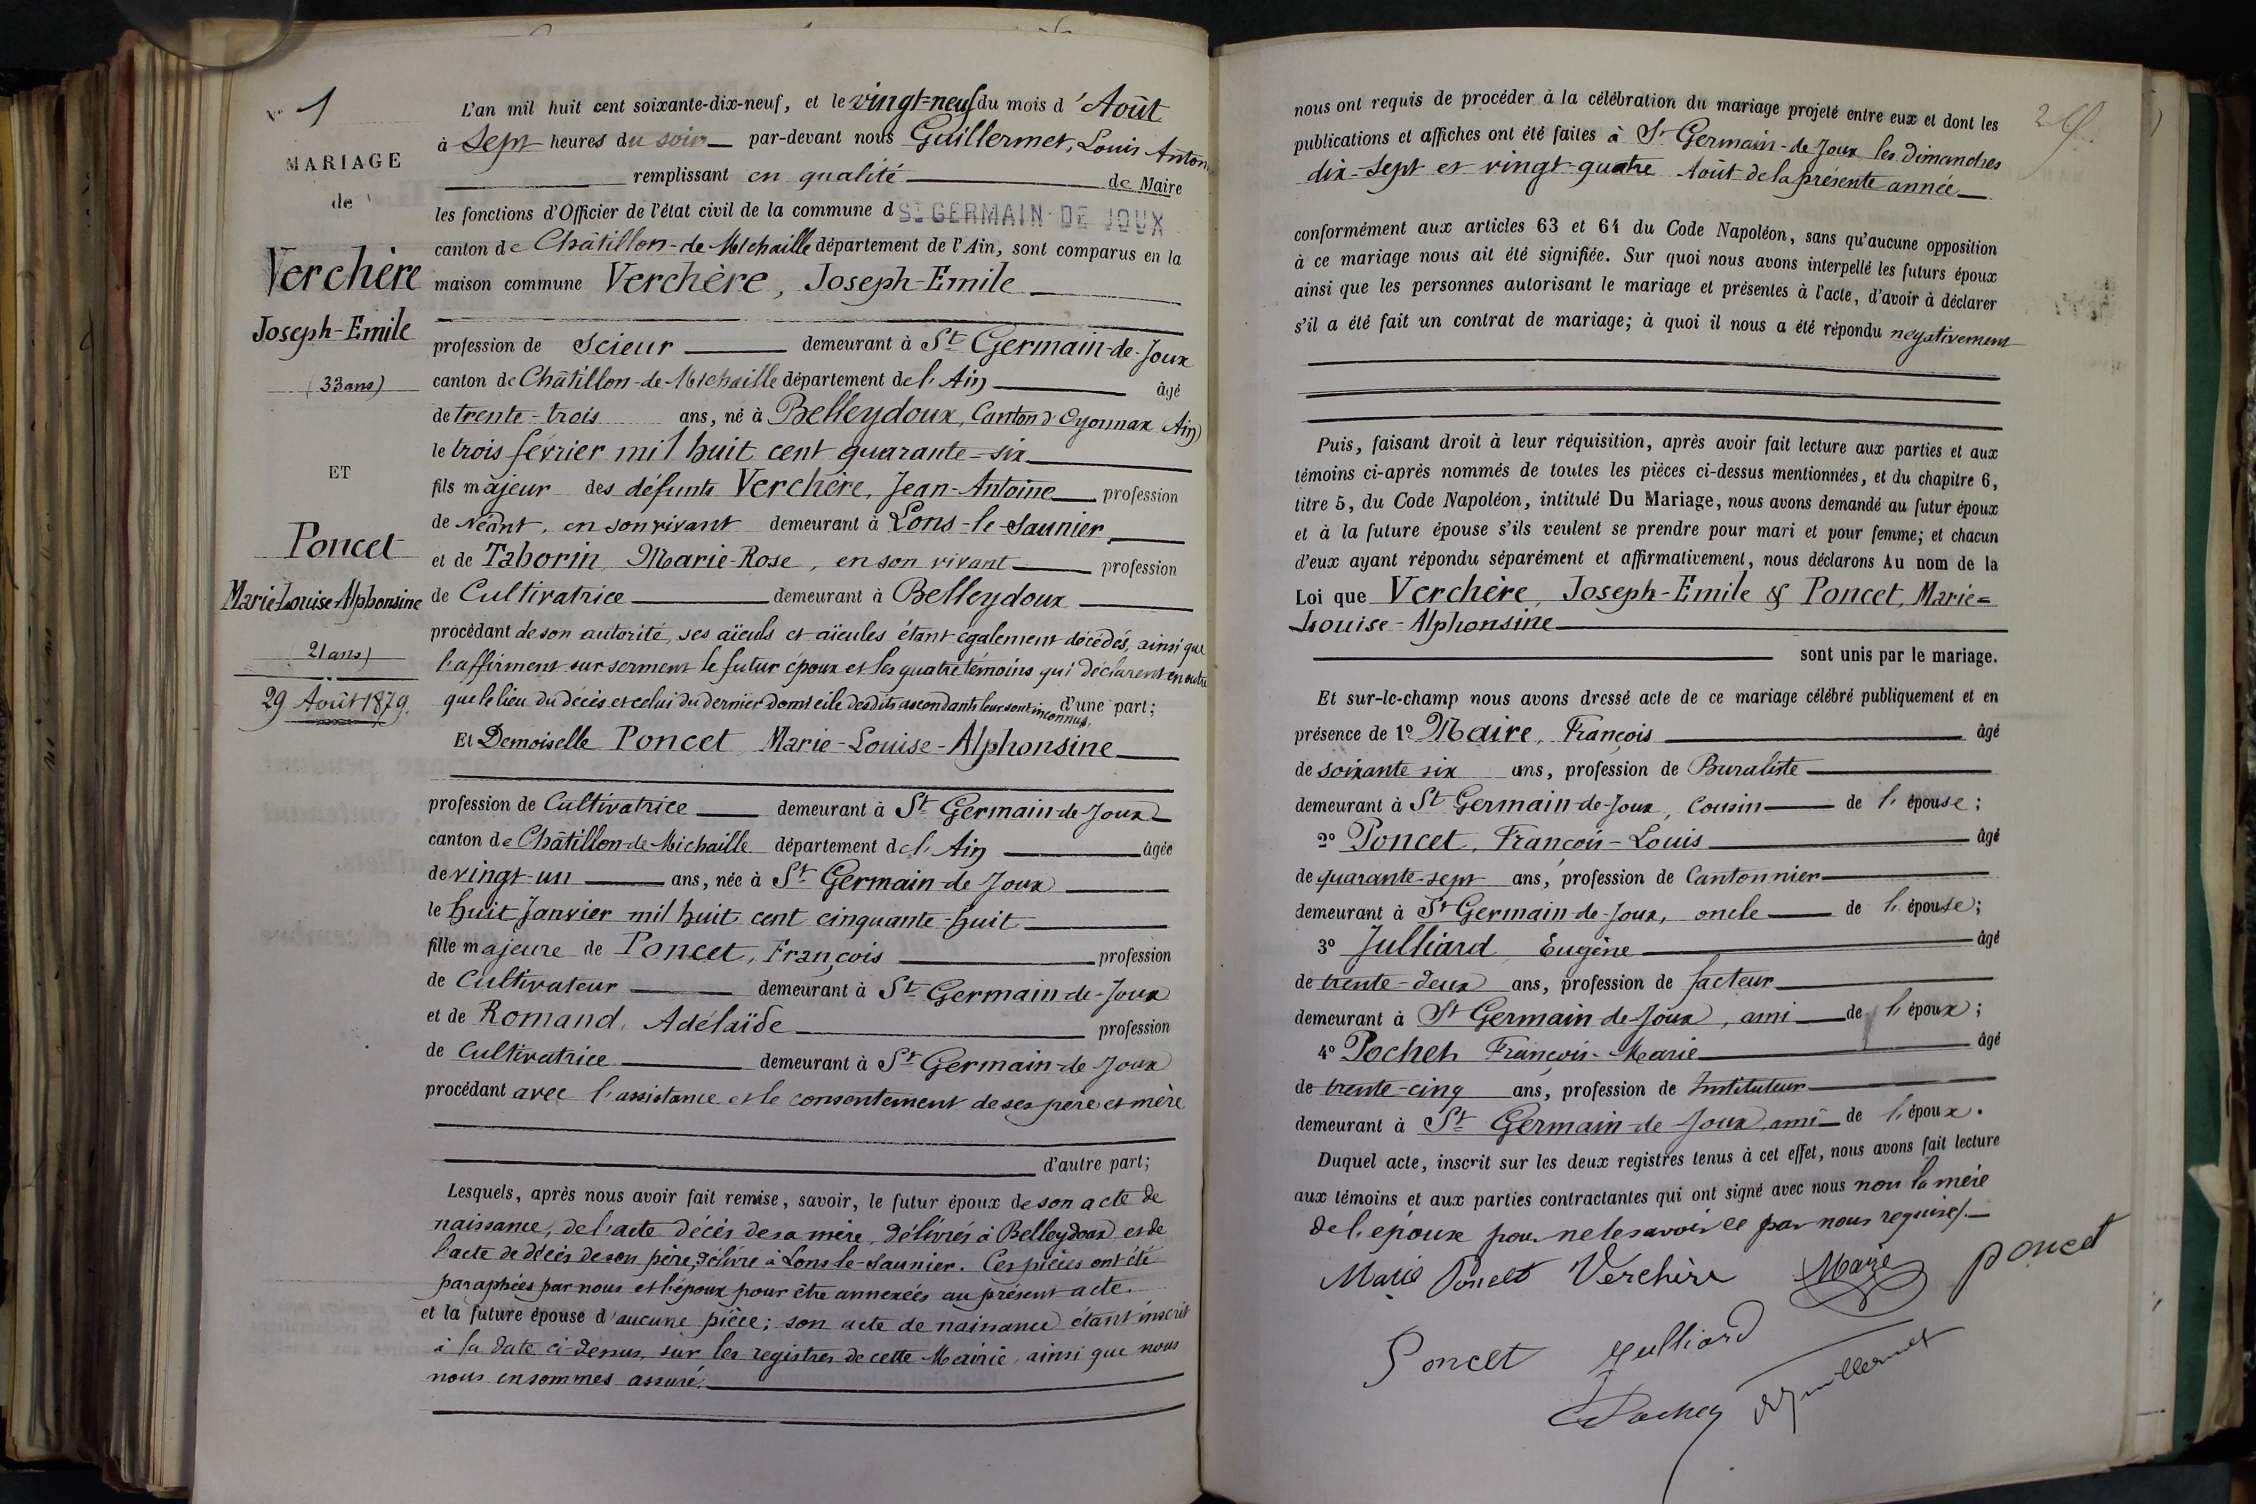 N° 1
MARIAGE
de
Verchère
Joseph-Emile
(33 ans)
ET
Poncet
Marie-Louise-Alphonsine
(21 ans)
29 Août 1879.
L'an mil huit cent soixante-dix-neuf, et le vingt-neuf du mois d'Août
à Sept heures du soir par-devant nous Guillermet, Louis Anton
remplissant en qualité de Maire
les fonctions d'Officier de l'état civil de la commune d ST GERMAIN-DE JOUX
canton de Châtillon-de Michaille département de l'Ain, sont comparus en la
maison commune Verchère, Joseph-Emile
profession de Scieur demeurant à St Germain-de-Joux
canton de Châtillon-de-Michaille département de l'Ain âgé
de trente-trois ans, né à Belleydoux, Canton d'Oyonnax (Ain)
le trois février mil huit cent quarante-six
fils majeur des défunts Verchère, Jean-Antoine profession
de Néant, en son vivant demeurant à Lons-le-Saunier,
et de Taborin, Marie-Rose, en son vivant profession
de Cultivatrice demeurant à Belleydoux
procédant de son autorité, ses aïeuls et aïeules étant également décédés, ainsi que
l'affirment sur serment le futur époux et les quatre témoins qui déclarent en outre
que le lieu du décès et celui du dernier domicile desdits ascendants leur sont inconnus, d'une part;
Et Demoiselle Poncet Marie-Louise-Alphonsine
profession de Cultivatrice demeurant à St Germain-de Joux
canton de Châtillon-de-Michaille département de l'Ain âgée
de vingt-un ans, née à St Germain-de Joux
le huit Janvier mil huit cent cinquante-huit
fille majeure de Poncet, François profession
de Cultivateur demeurant à St Germain-de-Joux
et de Romand, Adélaïde profession
de Cultivatrice demeurant à St Germain-de Joux
procédant avec l'assistance et le consentement de ses père et mère
d'autre part;
Lesquels, après nous avoir fait remise, savoir, le futur époux de son acte de
naissance, de l'acte décès de sa mère, délivrés à Belleydoux, et de
l'acte de décès de son père, délivré à Lons le-Saunier. Ces pièces ont été
paraphées par nous et l'époux pour être annexées au présent acte.
et la future épouse d'aucune pièce; son acte de naissance étant inscrit
à la date ci-dessus, sur les registres de cette Mairie, ainsi que nous
nous en sommes assuré.
nous ont requis de procéder à la célébration du mariage projeté entre eux et dont les
publications et affiches ont été faites à St Germain-de Joux les dimanches
dix-sept et vingt-quatre Août de la présente année
conformément aux articles 63 et 64 du Code Napoléon, sans qu'aucune opposition
à ce mariage nous ait été signifiée. Sur quoi nous avons interpellé les futurs époux
ainsi que les personnes autorisant le mariage et présentes à l'acte, d'avoir à déclarer
s'il a été fait un contrat de mariage; à quoi il nous a été répondu négativement
Puis, faisant droit à leur réquisition, après avoir fait lecture aux parties et aux
témoins ci-après nommés de toutes les pièces ci-dessus mentionnées, et du chapitre 6,
titre 5, du Code Napoléon, intitulé Du Mariage, nous avons demandé au futur époux
et à la future épouse s'ils veulent se prendre pour mari et pour femme; et chacun
d'eux ayant répondu séparément et affirmativement, nous déclarons Au nom de la
Loi que Verchère, Joseph-Emile & Poncet, Marie=
Louise-Alphonsine
sont unis par le mariage.
Et sur-le-champ nous avons dressé acte de ce mariage célébré publiquement et en
présence de 1° Maire, François âgé
de soixante six ans, profession de Buraliste
demeurant à St Germain-de-Joux, cousin de l'épouse;
2° Poncet, François-Louis âgé
de quarante-sept ans, profession de Cantonnier
demeurant à St Germain-de-Joux, oncle de l'épouse;
3° Julliard Eugène âgé
de trente-deux ans, profession de facteur
demeurant à St Germain de Joux, ami de l'époux;
4° Pochet François-Marie âgé
de trente-cinq ans, profession de Instituteur
demeurant à St Germain-de Joux, ami de l'époux.
Duquel acte, inscrit sur les deux registres tenus à cet effet, nous avons fait lecture
aux témoins et aux parties contractantes qui ont signé avec nous non la mère
de l'épouse pour ne le savoir ce par nous requise/.
Marie Poncet Verchère Maire Poncet
Poncet Julliard
Pochet Guillermet